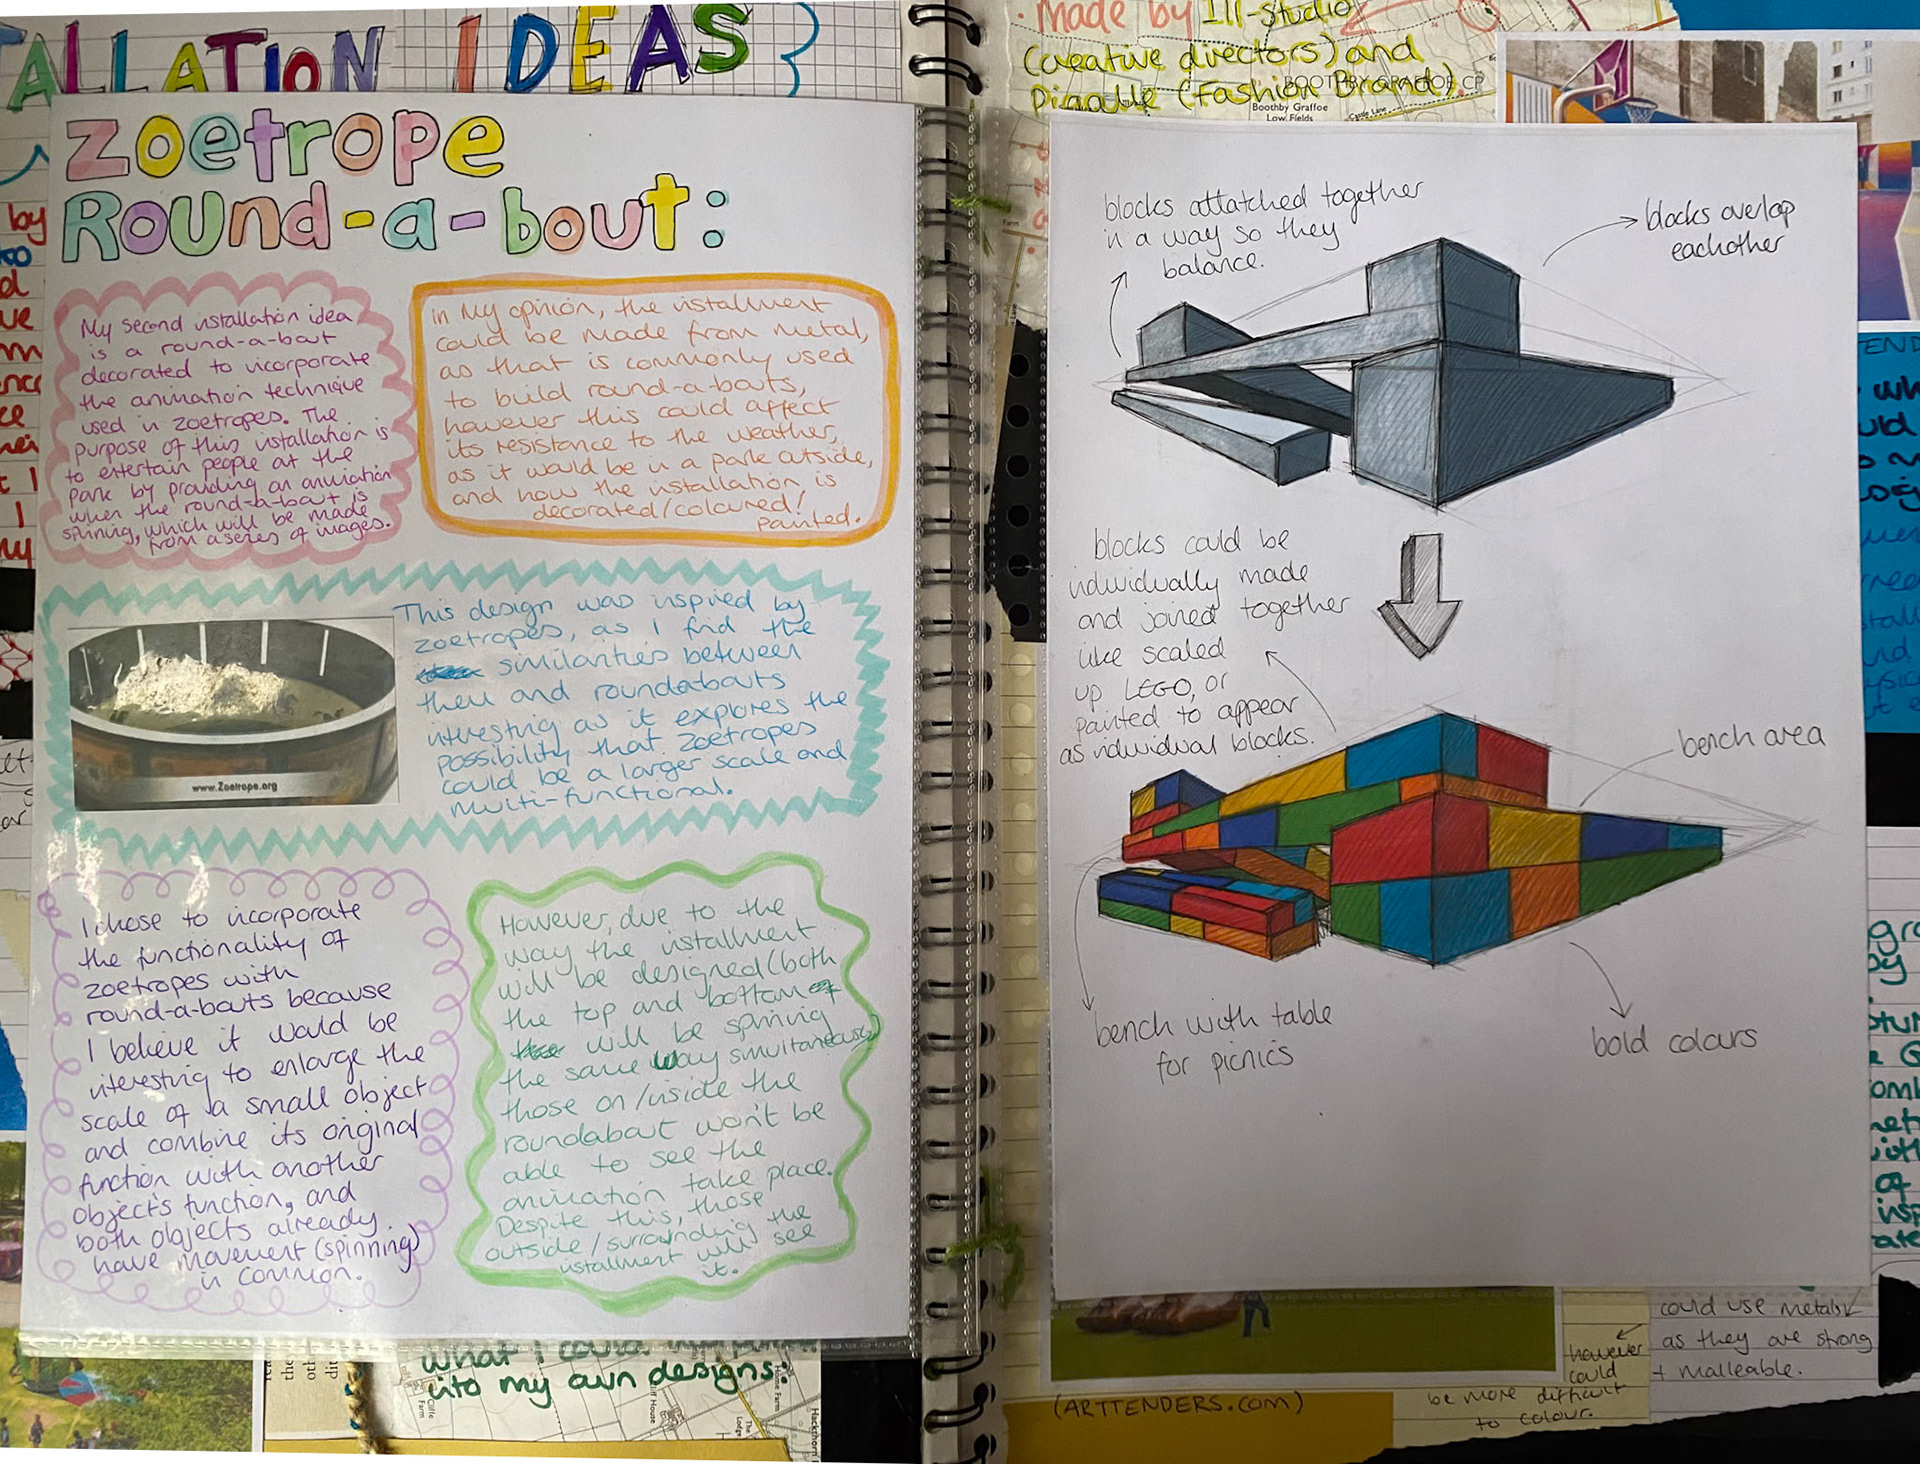 ALLATION IDEAS
zoetrope
Round-a-bout:
My second installation idea
is a round-a-bout
decorated to incorporate
the animation technique
used in zoetropes. The
purpose of this installation is
to entertain people at the
park by providing an animation
when the round-a-bout is
spinning, which will be made
from a series of images.
In my opinion, the installment
could be made from metal,
as that is commonly used
to build round-a-bouts,
however this could affect
its resistance to the weather,
as it would be in a park outside,
and how the installation is
decorated/coloured/
painted.
This design was inspired by
zoetropes, as I find the
similarities between
them and roundabouts
interesting as it explores the
possibility that zoetropes
could be a larger scale and
multi-functional.
www.Zoetrope.org
I chose to incorporate
the functionality of
zoetropes with
round-a-bouts because
I believe it would be
interesting to enlarge the
scale of a small object
and combine its original
function with another
object's function, and
both objects already
have movement (spinning)
in common.
However, due to the
way the installment
will be designed (both
the top and bottom of
will be spinning
the same way simultaneously)
those on/inside the
roundabout won't be
able to see the
animation take place.
Despite this, those
outside/surrounding the
installment will see
it.
into my own designs:
Cliffe
Farm
Cliff House
The
Lodge
Home Farm
• Made by Ill-Studio
(creative directors) and
Pigalle (Fashion Brand).
BOOTHBY GRAFFOE CP
Boothby Graffoe
Low Fields
blocks attatched together
in a way so they
balance.
blocks overlap
eachother
blocks could be
individually made
and joined together
like scaled
up LEGO, or
painted to appear
as individual blocks.
bench area
bench with table
for picnics
bold colours
(ARTTENDERS.COM)
could use metals
as they are strong
+ malleable.
however
could
be more difficult
to colour.